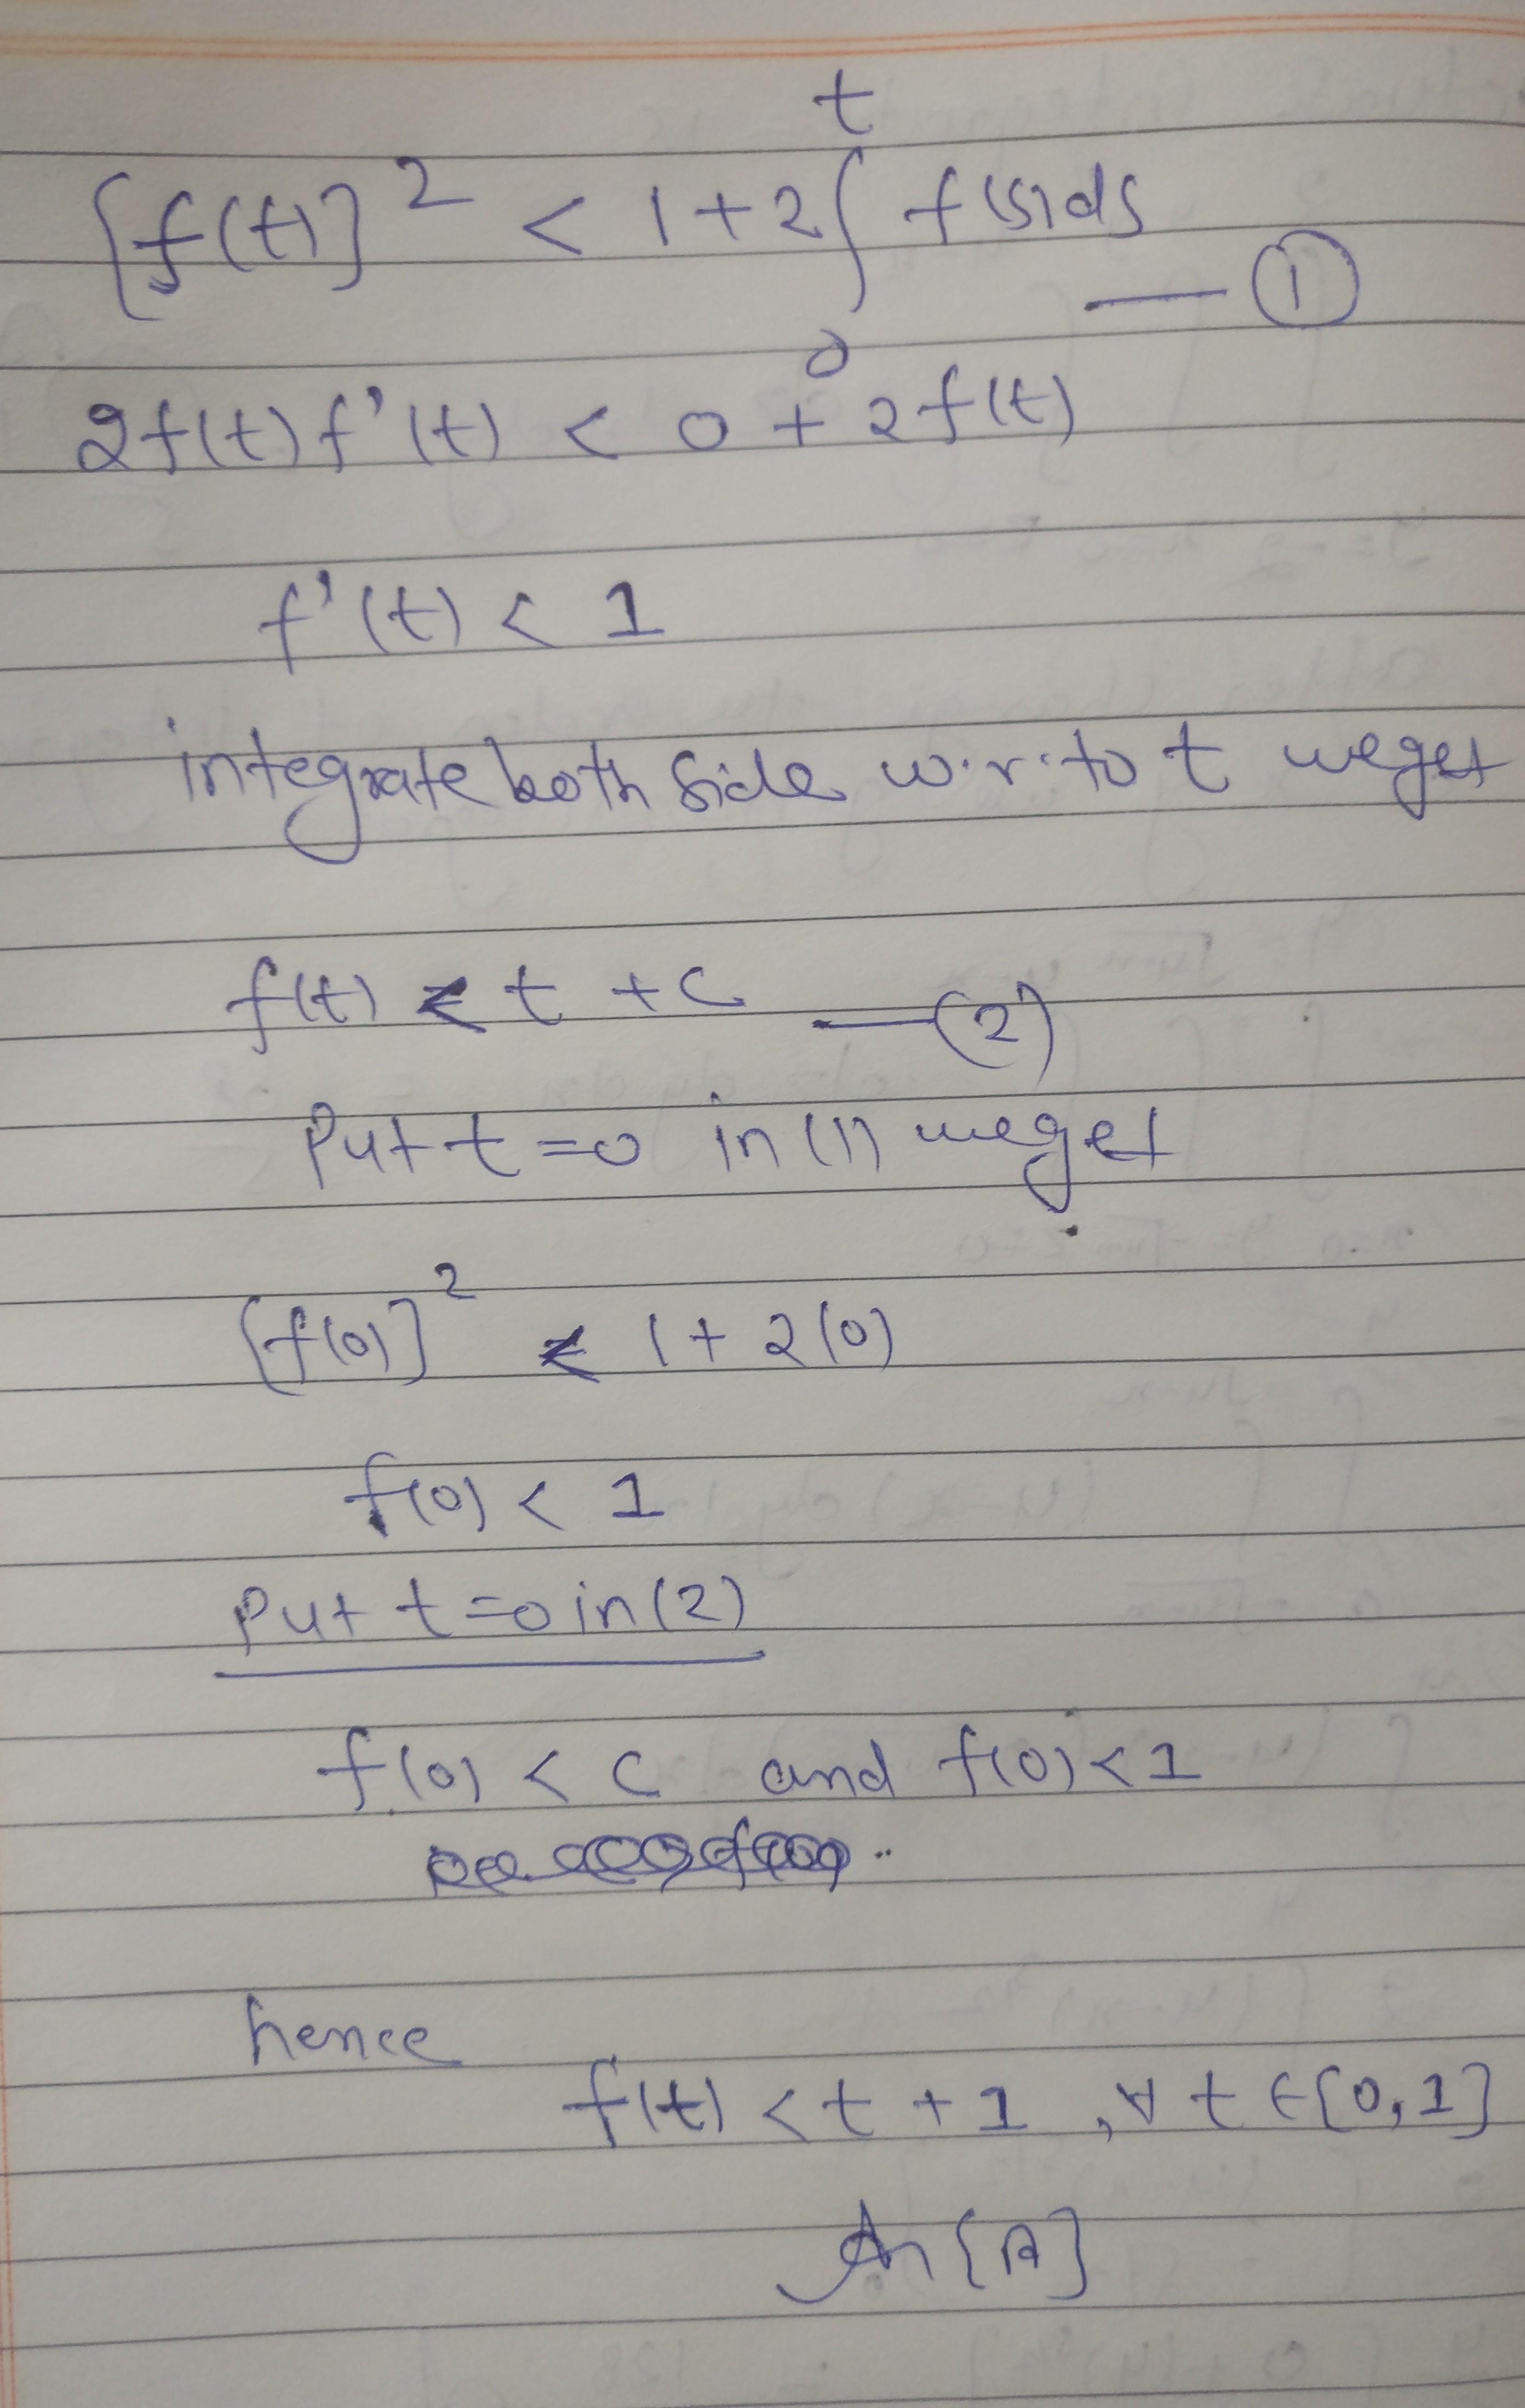 [f(t)]² < 1+2∫₀ᵗ f(s)ds —①
2f(t)f'(t) < 0 + 2f(t)
f'(t) < 1
integrate both side w.r.to t we get
f(t) < t + c —(2)
Put t=0 in (1) we get
[f(0)]² < 1+2(0)
f(0) < 1
Put t=0 in (2)
f(0) < c and f(0) < 1
hence
f(t) < t + 1 , ∀ t ∈ [0,1]
An [A]